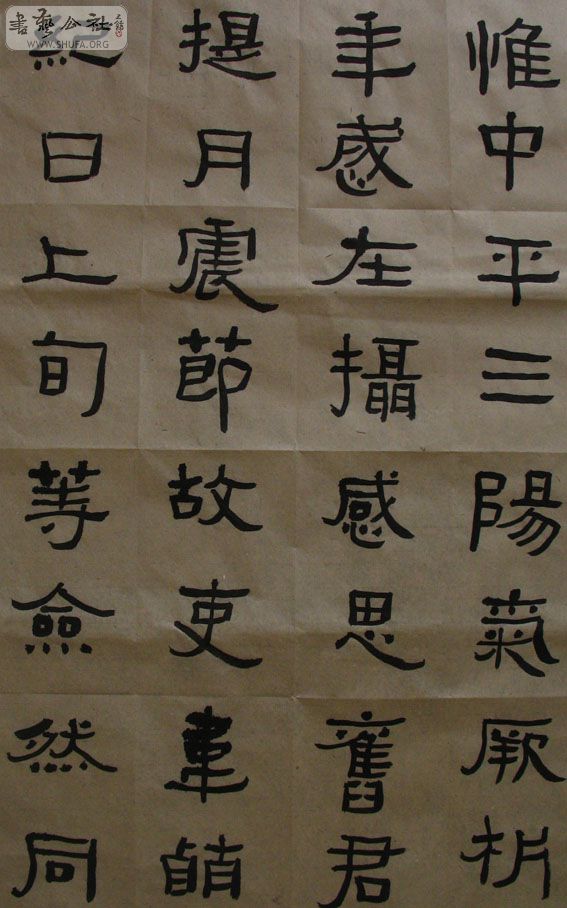 惟中平三陽氣厥析
年歲在攝感思舊君
提月震節故吏韋萌
日上旬等僉然同
書藝公社
WWW.SHUFA.ORG